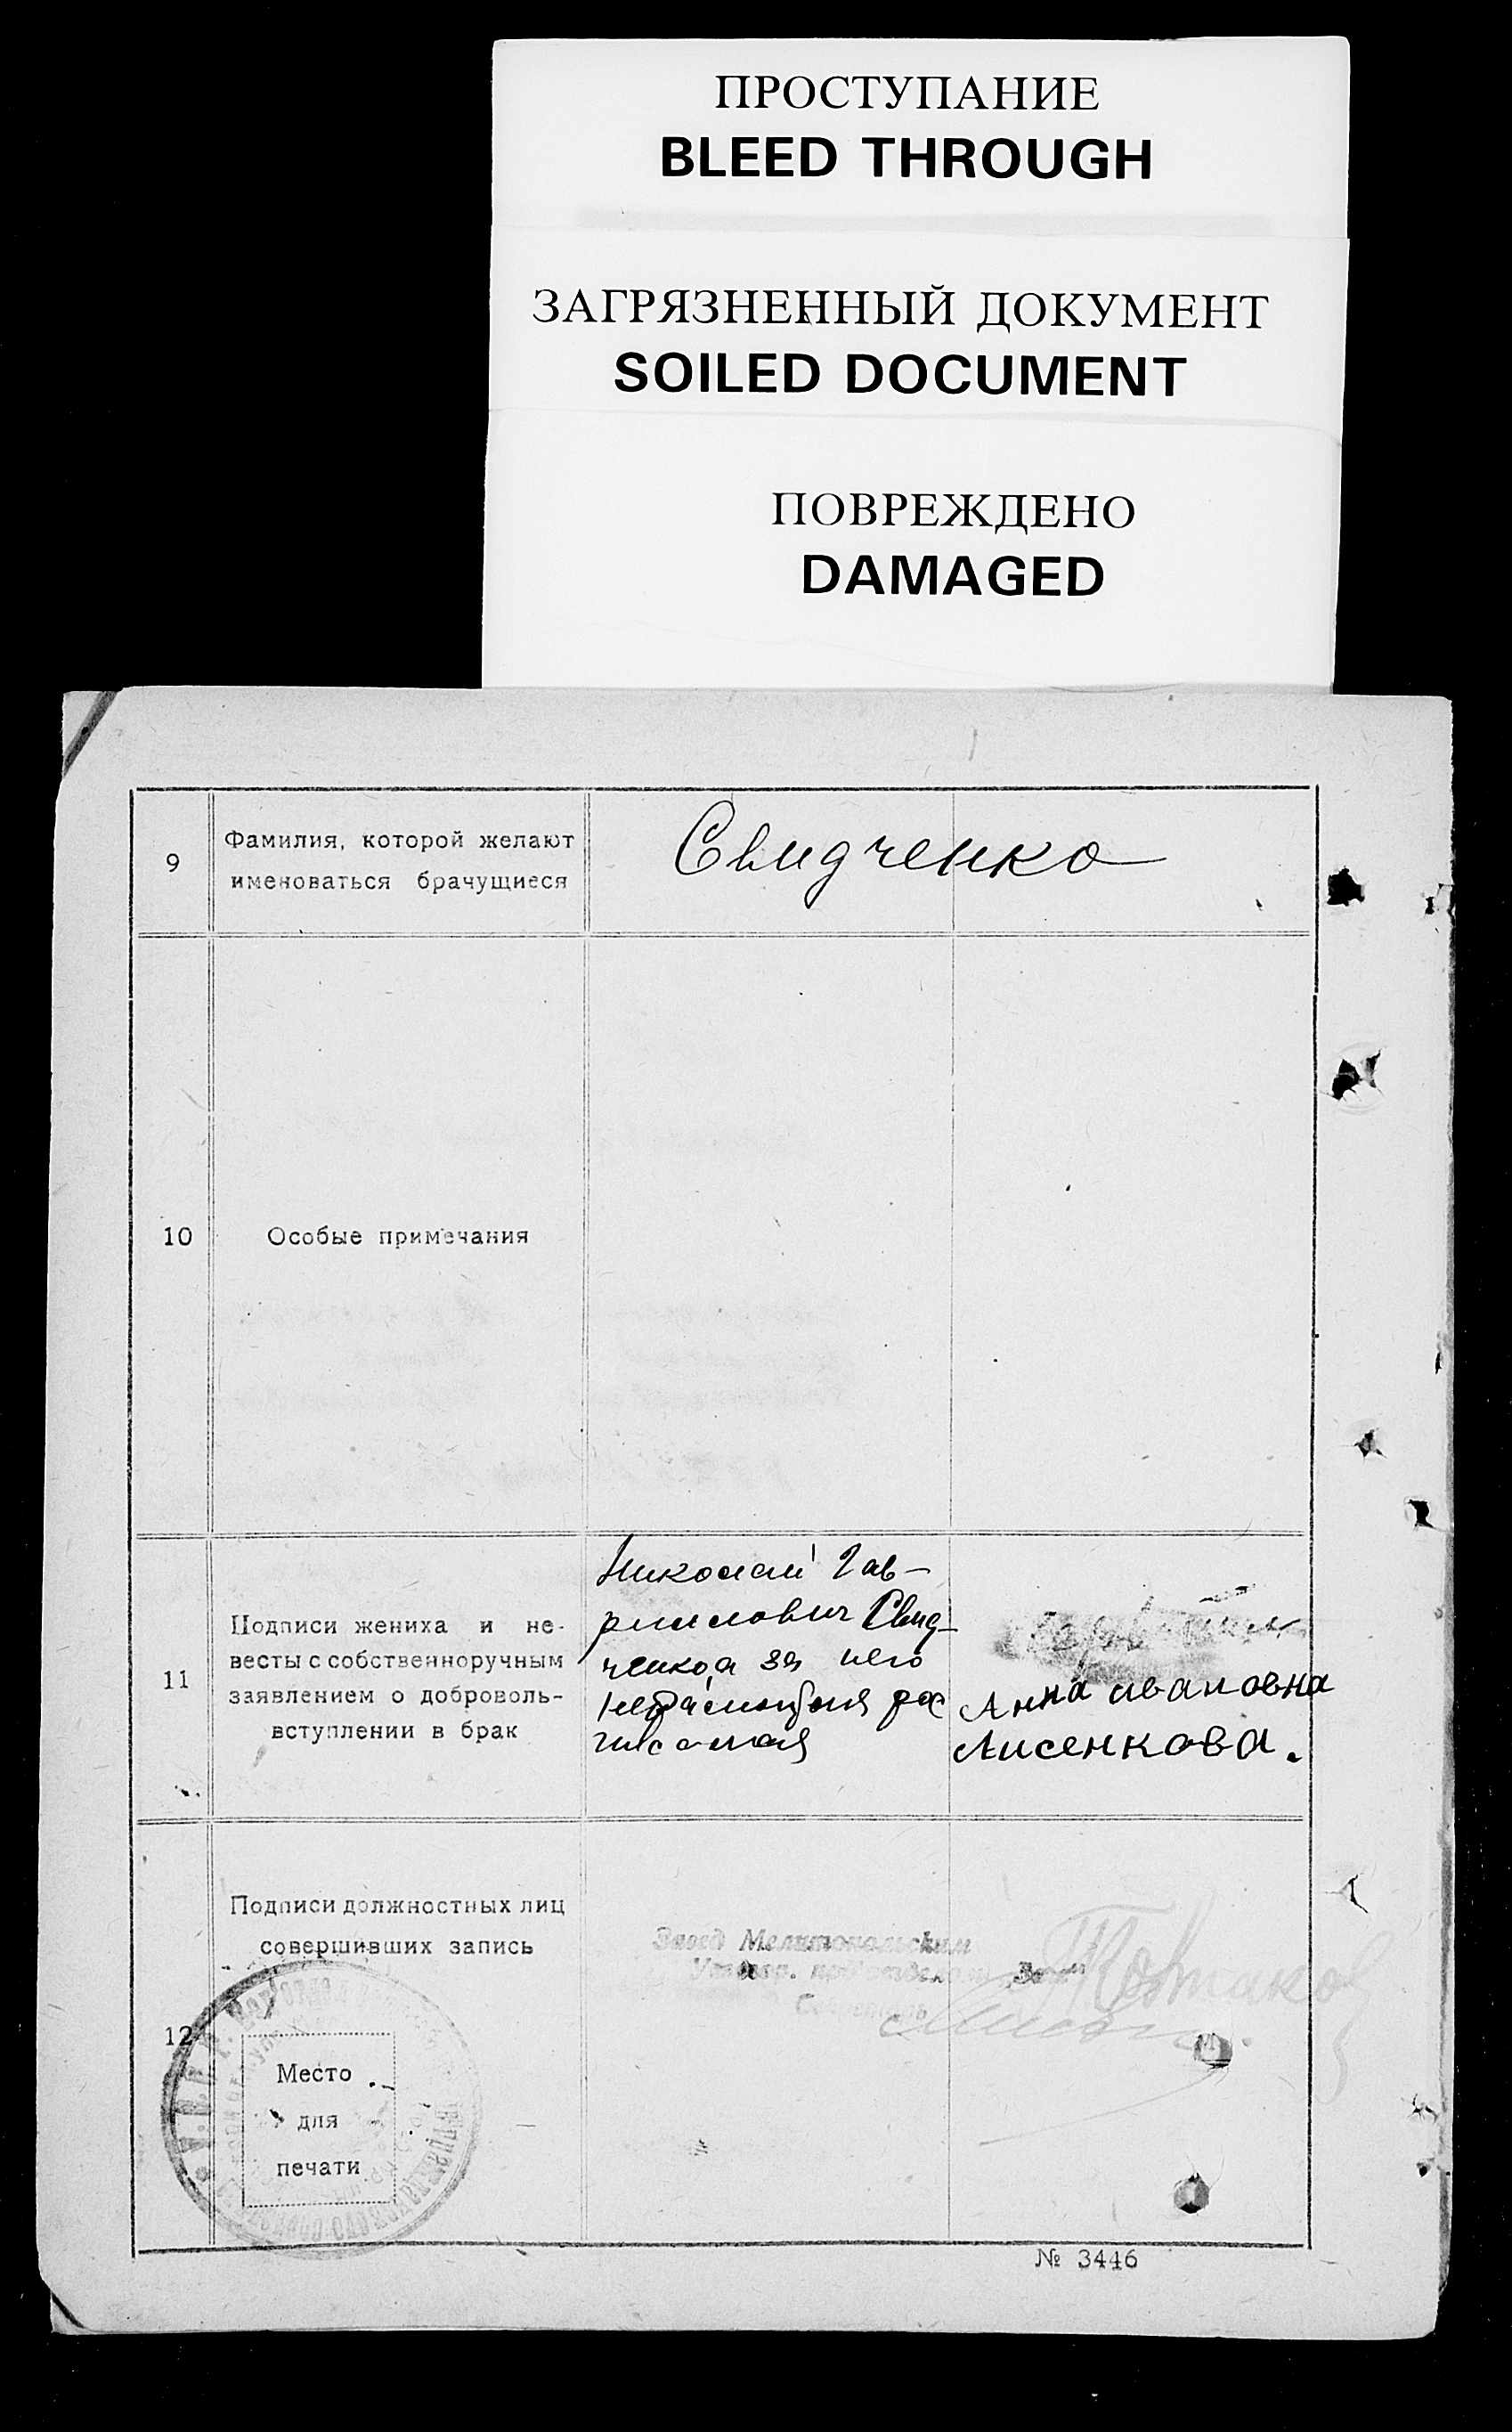 ПРОСТУПАНИЕ
BLEED THROUGH
ЗАГРЯЗНЕННЫЙ ДОКУМЕНТ
SOILED DOCUMENT
ПОВРЕЖДЕНО
DAMAGED
9
Фамилия, которой желают
именоваться брачущиеся
Свидченко
10
Особые примечания
11
Подписи жениха и не-
весты с собственноручным
заявлением о доброволь-
вступлении в брак
Николай Гав-
риилович Свид-
ченко, а за него
рос
Анна Ивановна
Лисенкова.
12
Подписи должностных лиц
совершивших запись
Место
для
печати
Завед Мелитопольским
№ 3446